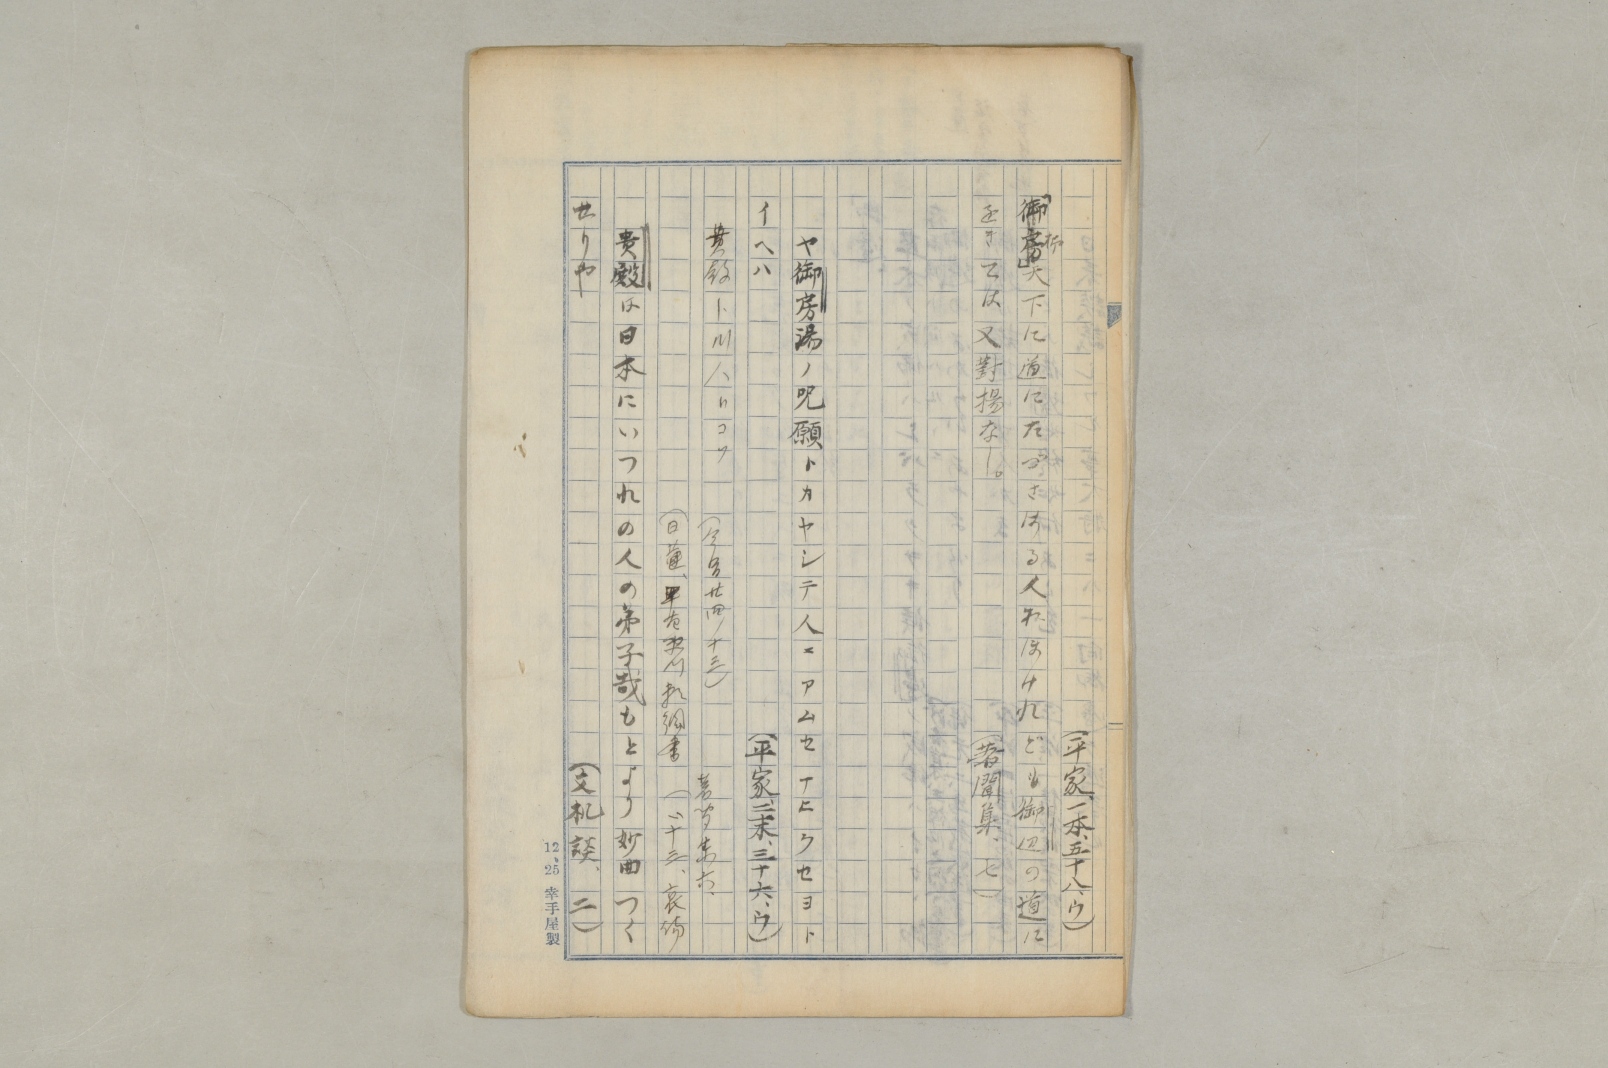 (平家、一本、五十八、ウ)
「御房」天下に道にたづさはる人おほけれども御辺の道に
をきては又對揚なし。
(著聞集、七)
ヤ御房湯ノ呪願トカヤシテ人ニアムセナヒクセヨト
イヘハ
(平家、二末、三十六、ウ)
貴殿ト川人りコソ
(今昔廿四ノ十三)
著聞集六、
(日蓮、
十三、哀傷
貴殿は日本にいつれの人の弟子哉もとより妙曲つく
せりや
(文机談、二)
12、25 幸手屋製